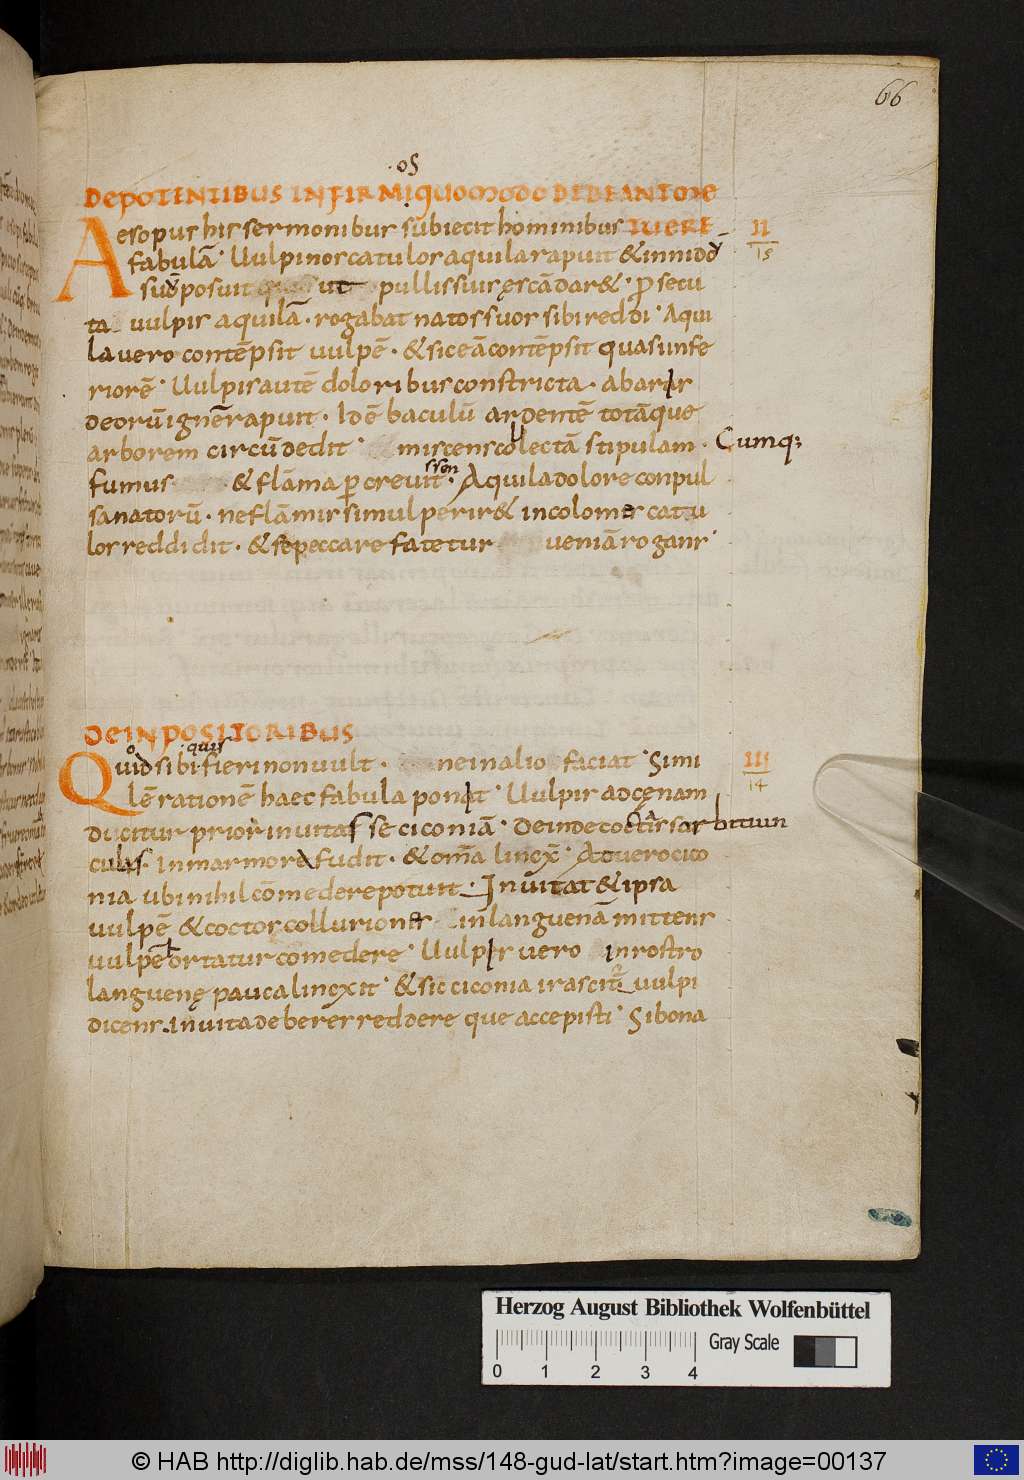 66
os
DE POTENTIBUS INFIRMI QUOMODO DEBEANT
Aesopus his sermonibus subiecit hominibus
II
15
fabulā Uulpinos catulos aquila rapuit & in nido
suo posuit ut pullis suis ęscā dar& p secu
ta uulpis aquilā rogabat natos suos sibi reddi Aqui
la uero contēpsit uulpē & sic eā contēpsit quasi infe
riorē Uulpis autē doloribus constricta ab aris
deorū ignē rapuit Idē baculū ardentē totāque
arborem circūdedit miscens collectā stipulam Cumq;
ssen
fumus & flāma p creuit Aquila dolore conpul
sa natorū ne flāmis simul perir& incolomes catu
los reddidit & se peccare fatetur ueniā rogans
DE INPOSITORIBUS
o quis
Quid sibi fieri non uult ne in alio faciat Simi
III
14
lē rationē haec fabula ponit Uulpis ad cęnam
dicitur prior inuitasse ciconiā Deinde coctis sorbitiun
culas in marmore fudit & omīa linexit At uero cico
nia ubi nihil cōmedere potuit Inuitat & ipsa
uulpē & coctos colluriones in languenā mittens
uulpē ortatur comedere Uulpis uero in rostro
languenę pauca linexit & sic ciconia irascitur uulpi
dicens inuita deberes reddere que accepisti Si bona
Herzog August Bibliothek Wolfenbüttel
Gray Scale
0 1 2 3 4
© HAB http://diglib.hab.de/mss/148-gud-lat/start.htm?image=00137